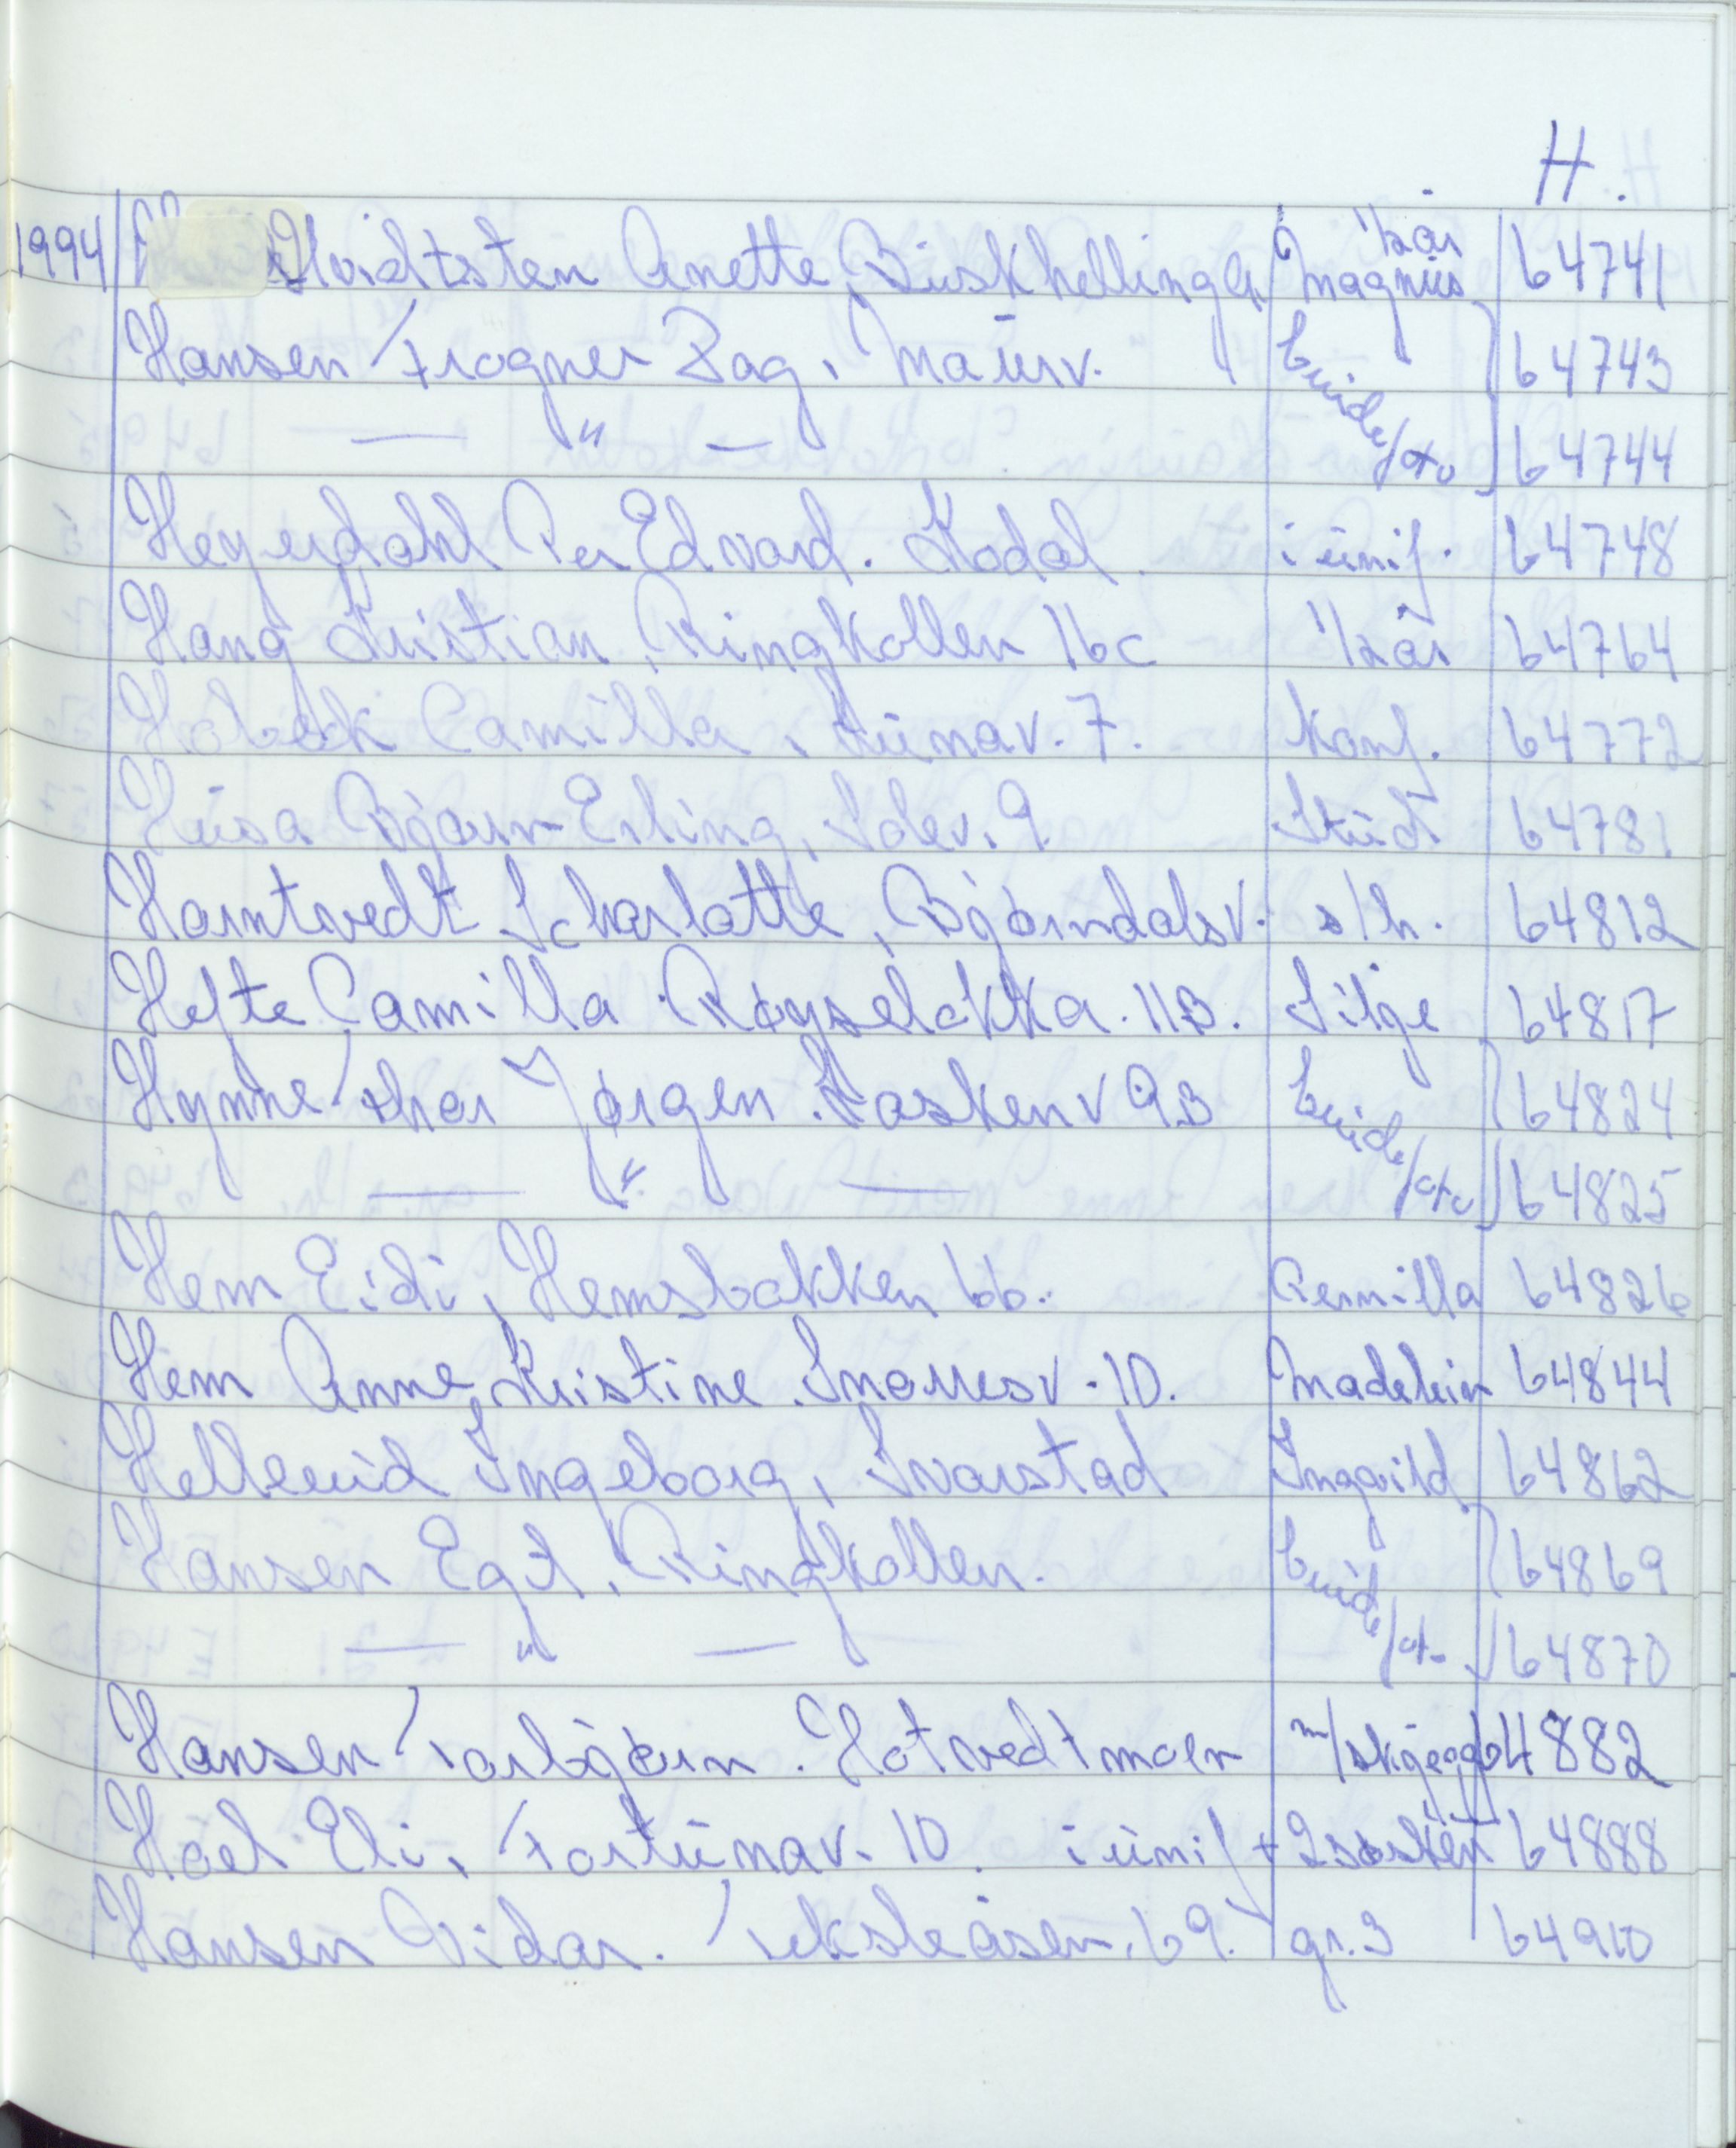 H.
1994 Hvidtsten Anette, Buskhellinga 1/2 år Magnus 64741
Hansen / Fragner Dag, Maurv. brude/ 64743
— " — oto 64744
Heyerdahl Per Edvard. Kodal i unif. 64748
Haug Kristian, Ringkollen 16c 1/2 år 64764
Hobæk Camilla, Runav. 7. Konf. 64772
Husa Bjørn-Erling, Idev. 9. Stud 64781
Hørntvedt Scharlotte, Bjørndalsv. s/h. 64812
Hefte Camilla Røyseløkka. 11B. Silje 64817
Hynne / Thor Jørgen. Haskenv 9B brude/ 64824
— " — oto 64825
Hem Eidi, Hemsbakken 6b. Pernilla 64826
Hem Anne Kristine. Snorresv. 10. Madelein 64844
Hellerud Ingeborg, Svarstad Ingvild 64862
Hansen Egil, Ringkollen. brude/ 64869
— " — oto 64870
Hansen Torbjørn. Hotvedtmoen m/skjegg 64882
Hoel Eli, Fortunav. 10. i unif + 2 søsken 64888
Hansen Vidar. Furksleåsen. 69. gr. 3 64910